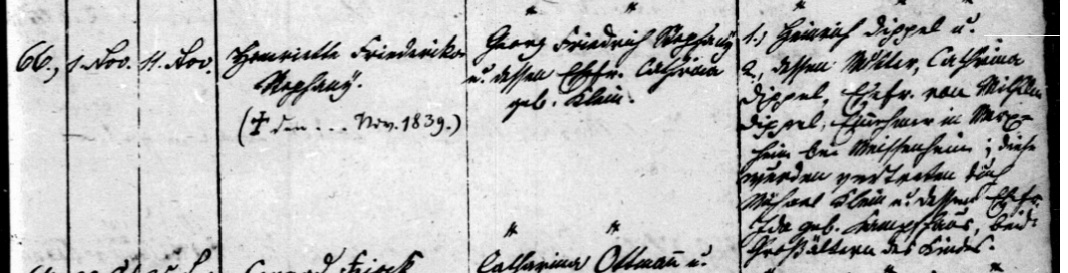 66., 1. Nov. 11. Nov.
Henriette Friederike
Stephany.
(† den ... Nov. 1839.)
Georg Friedrich Stephany
u. dessen Ehefr. Catharina
geb. Klein.
1.) Heinrich Dippel u.
2., dessen Mutter, Catharina
Dippel, Ehefr. von Wilhelm
Dippel, Einwohner in
heim bei Meissenheim; diese
wurden vertreten durch
Michael Klein u. dessen Ehefr.
Ida geb. Kampfhaus, beide
Großältern des Kindes.
Catharina Ottmann u.